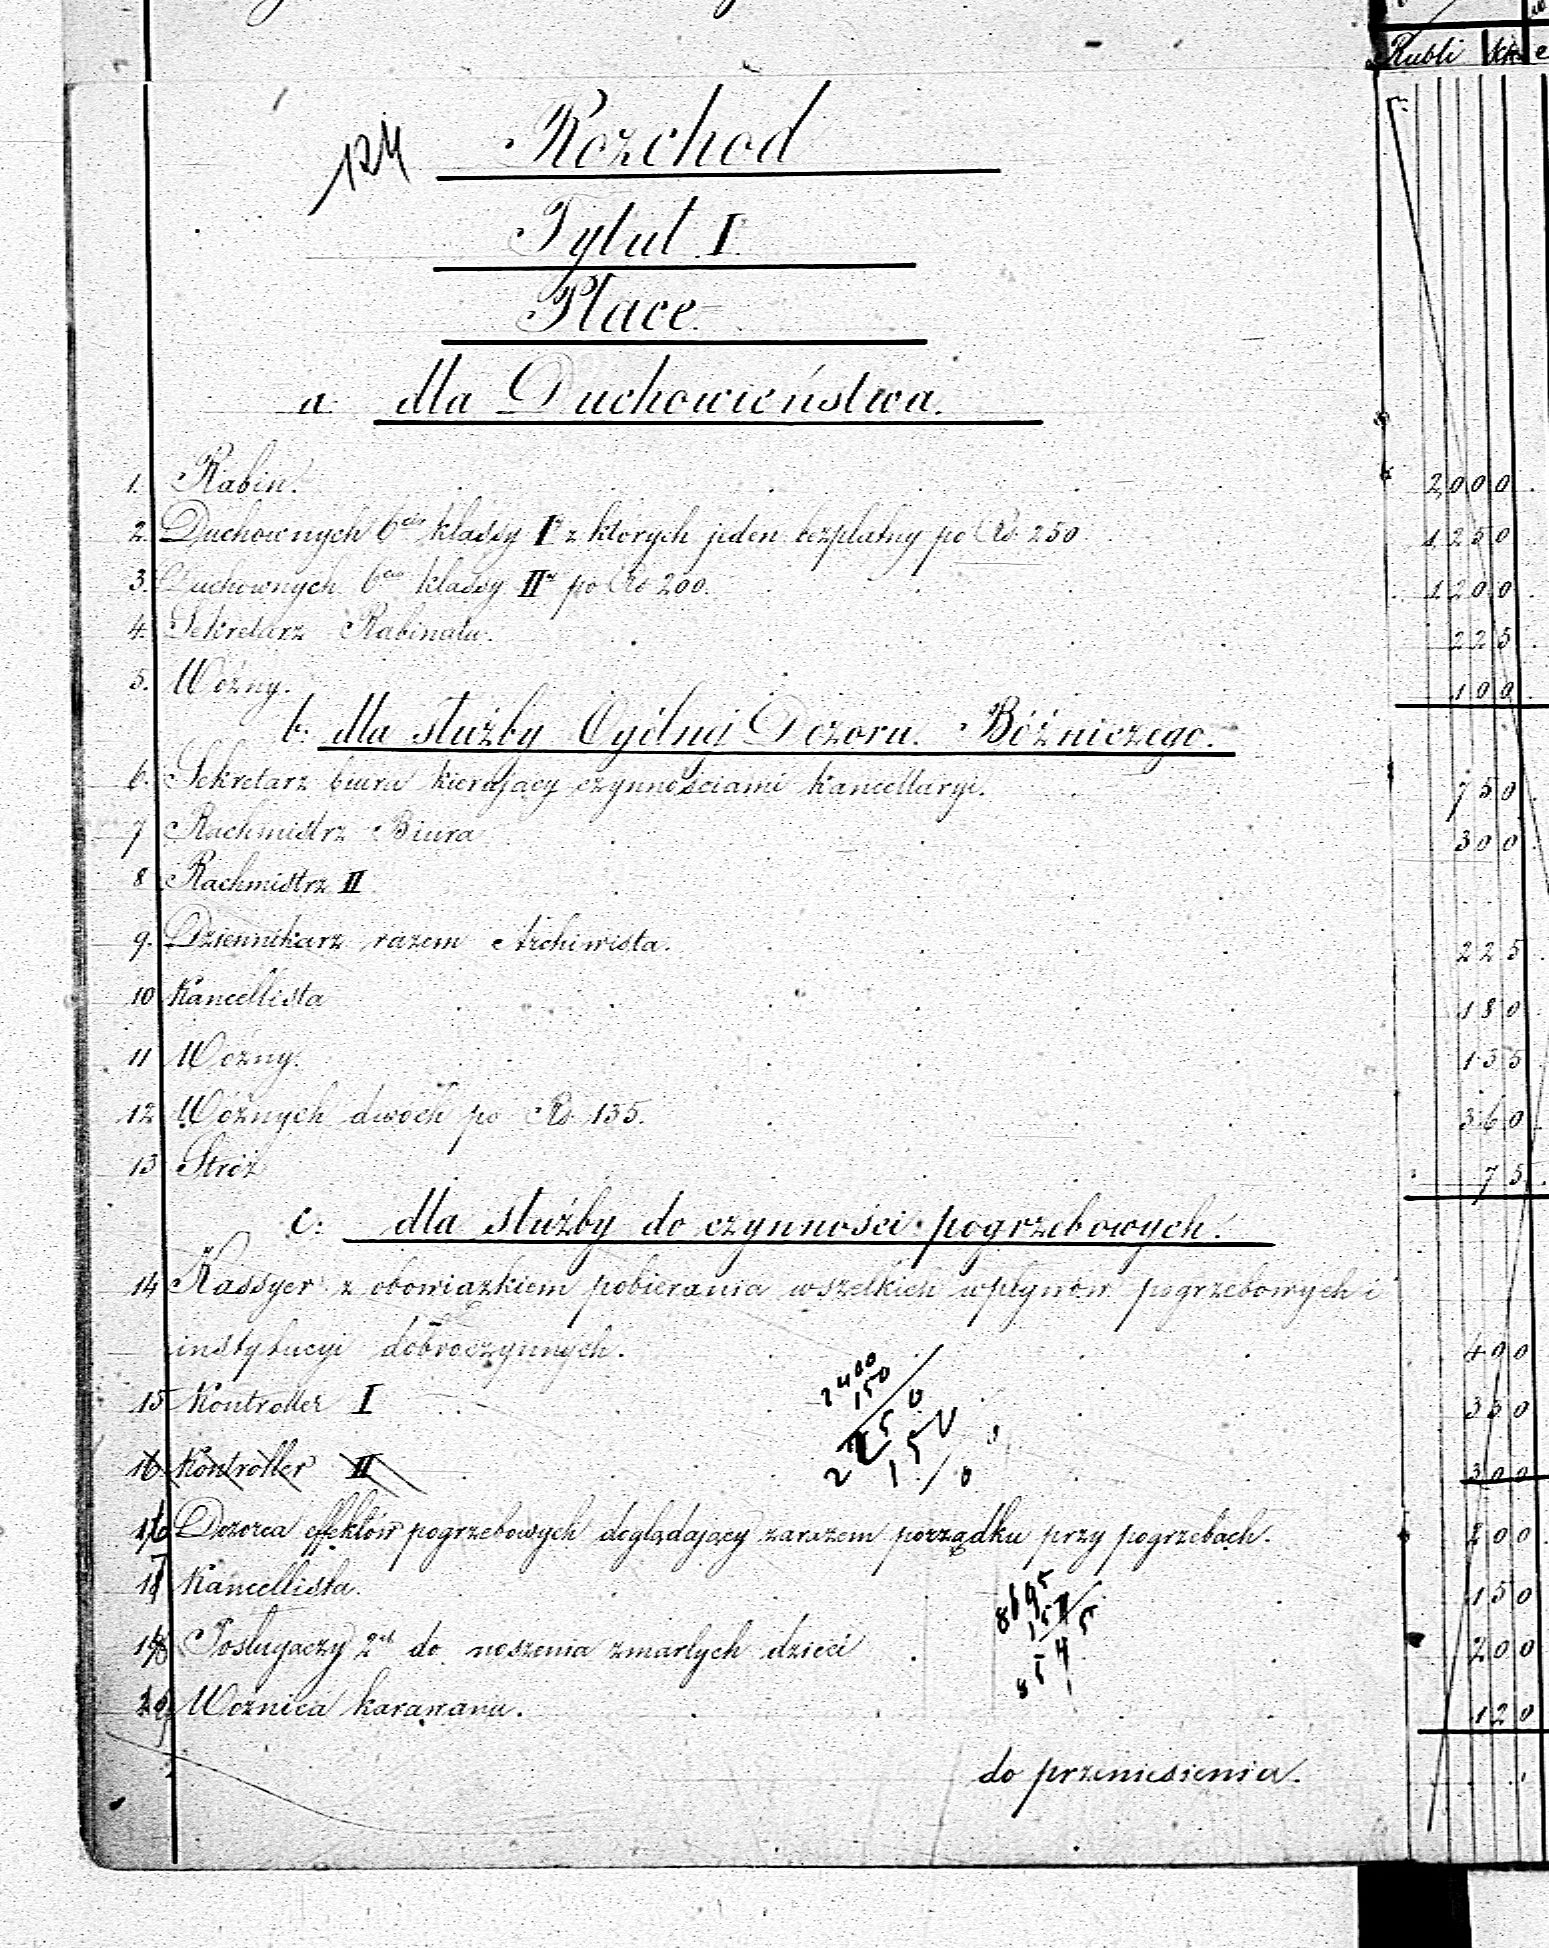 Rubli
124
Rozchod
Tytuł I.
Płace
a. dla Duchowieństwa.
1. Rabin. 2000
2. Duchownych 6ciu klassy I z ktorych jeden bezpłatny po Rs. 250 1250
3. Duchownych 6ciu klassy II po Rs 200. 1200
4. Sekretarz Rabinatu. 225
5. Woźny. 100
b. dla służby Ogólnej Dozoru Bóźniczego.
6. Sekretarz biura kierujący czynnościami kancellaryi. 750
7 Rachmistrz Biura 300
8 Rachmistrz II
9. Dziennikarz razem Archiwista. 225
10 Kancellista 180
11 Woźny. 135
12 Woźnych dwóch po Rs. 135. 360
13 Stróż 75
c: dla służby do czynności pogrzebowych.
14 Kassyer z obowiazkiem pobierania wszelkich wpływów pogrzebowych i
instytucyi dobroczynnych. 400
15 Kontroller I 350
16 Kontroller II 300
Dozorca effektów pogrzebowych doglądający zarazem porządku przy pogrzebach. 200
Kancellista. 150
Posługaczy 2ch do noszenia zmarłych dzieci 200
Woznica karawanu. 120
do przeniesienia.